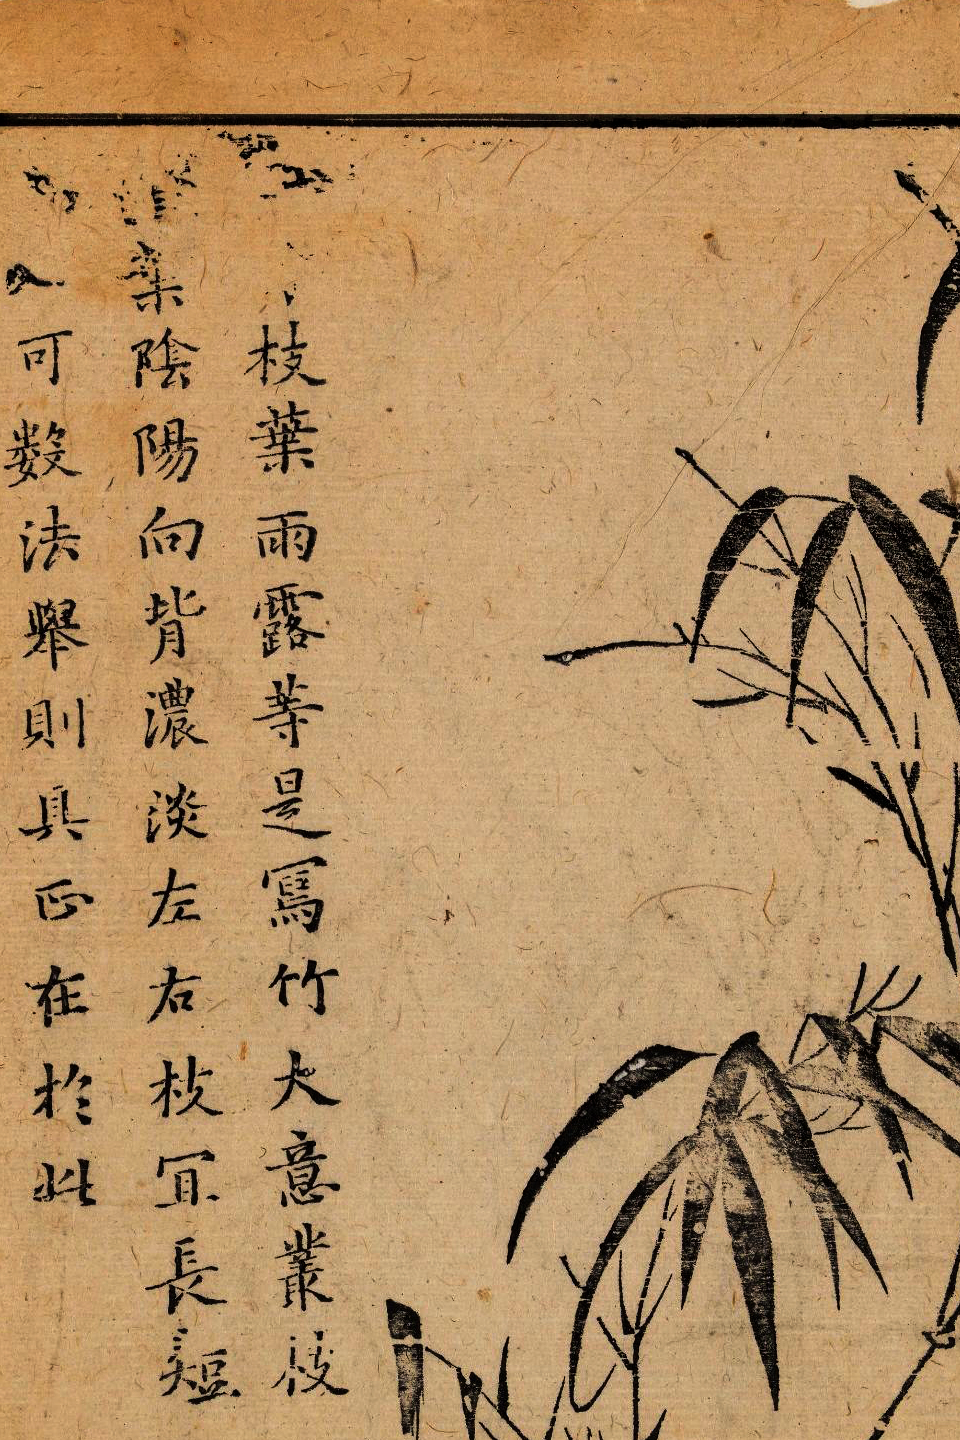 枝葉雨露等是寫竹大意叢枝
葉陰陽向背濃淡左右枝冝長短
可數法舉則具正在於此